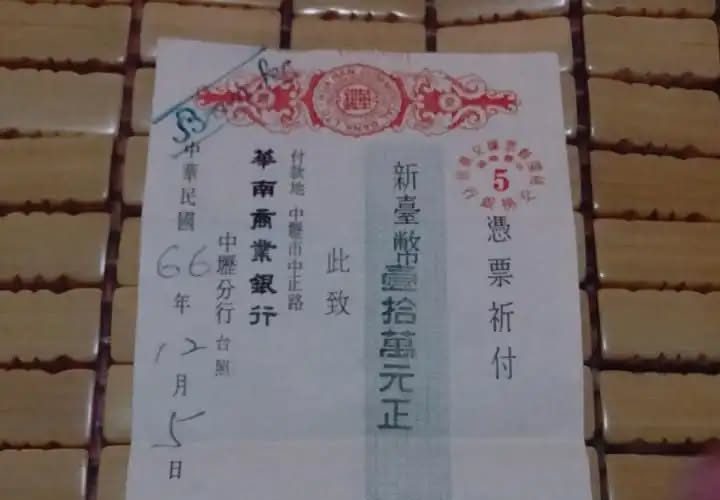 憑票祈付
5
新臺幣壹拾萬元正
此致
付款地 中壢市中正路
華南商業銀行
中壢分行 台照
中華民國 66 年 12 月 5 日